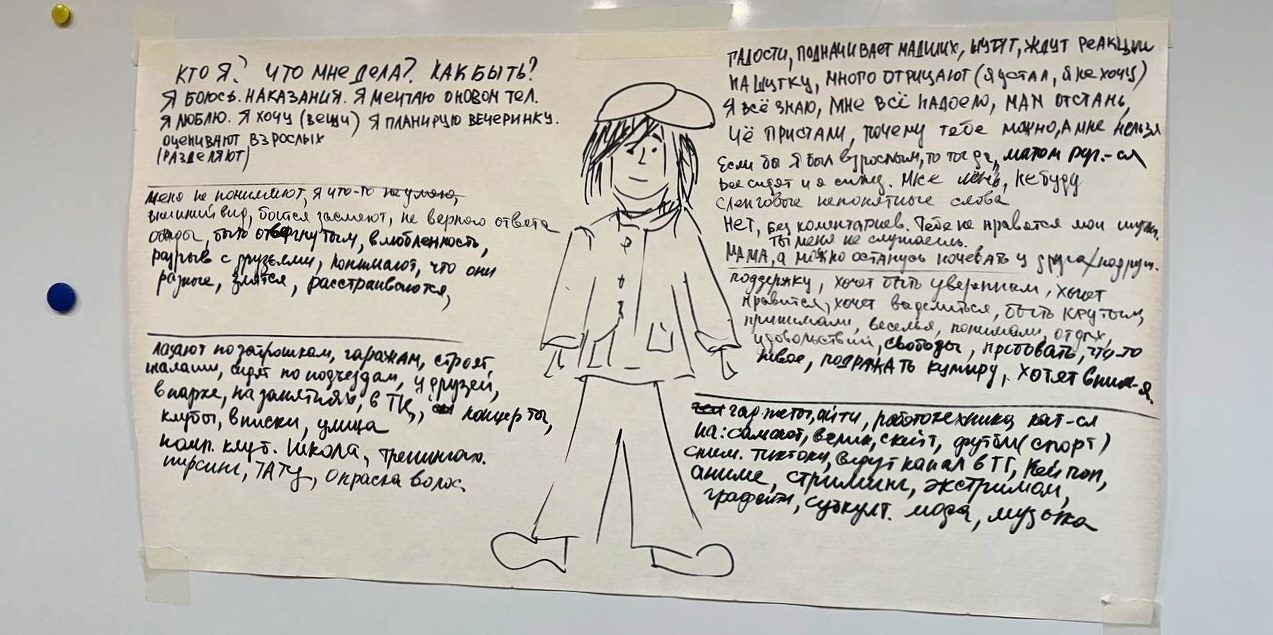 КТО Я? ЧТО МНЕ ДЕЛА? КАК БЫТЬ?
Я БОЮСЬ. НАКАЗАНИЯ. Я МЕЧТАЮ О НОВОМ ТЕЛ.
Я ЛЮБЛЮ. Я ХОЧУ (ВЕЩИ) Я ПЛАНИРУЮ ВЕЧЕРИНКУ.
ОЦЕНИВАЮТ ВЗРОСЛЫХ
(РАЗДЕЛЯЮТ)
меня не понимают, я что-то не умею,
внешний вид, боится засмеют, не верного ответа
быть отвергнутым, влюбленность,
разрыв с друзьями, понимают, что они
разные, злятся, расстраиваются,
лазают по заброшкам, гаражам, строят
шалаши, сидят по подъездам, у друзей,
в парке, на занятиях, в ТЦ, концерты,
клубы, вписки, улица
комп. клуб. Школа, тренингах.
пирсинг, ТАТУ, окраска волос
ГАДОСТИ, ПОДНАЧИВАЕТ МЛАДШИХ, ШУТЯТ, ЖДУТ РЕАКЦИИ
НА ШУТКУ, МНОГО ОТРИЦАЮТ (Я УСТАЛ, Я НЕ ХОЧУ)
Я ВСЁ ЗНАЮ, МНЕ ВСЁ НАДОЕЛО, МАМ ОТСТАНЬ,
ЧЁ ПРИСТАЛИ, почему тебе можно, А мне нельзя
Если бы я был взрослым, то тогда, матом руг.-ся
Все сидят и я сижу. Мне лень, не буду
Сленговые непонятные слова
Нет, без коментариев. Тебе не нравятся мои шутки,
ты меня не слушаешь.
МАМА, а можно останусь ночевать у друга/подруги.
поддержку, хочет быть уверенным, хочет
нравится, хочет выделиться, быть крутым,
принимали, веселья, понимали, отдых,
удовольствий, свободы, пробовать, что-то
новое, подражать кумиру, хотят вним-я.
гаджеты, айти, робототехника кат-ся
на: самокат, велик, скейт, футбол (спорт)
сним. тиктоки, ведут канал в ТГ, Кей поп,
аниме, стриминг, экстримом,
графети, субкульт. мода, музыка